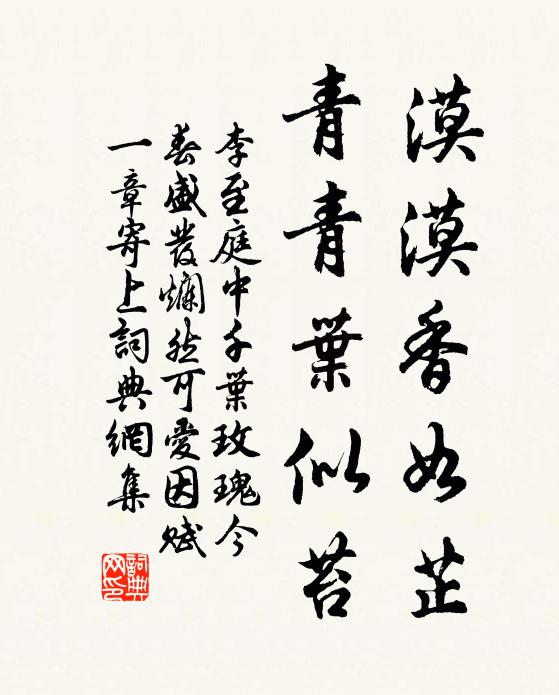 漠漠香如芷
青青葉似苔
李至庭中千葉玫瑰今
春盛發爛然可愛因賦
一章寄上詞典網集
詞典
网印